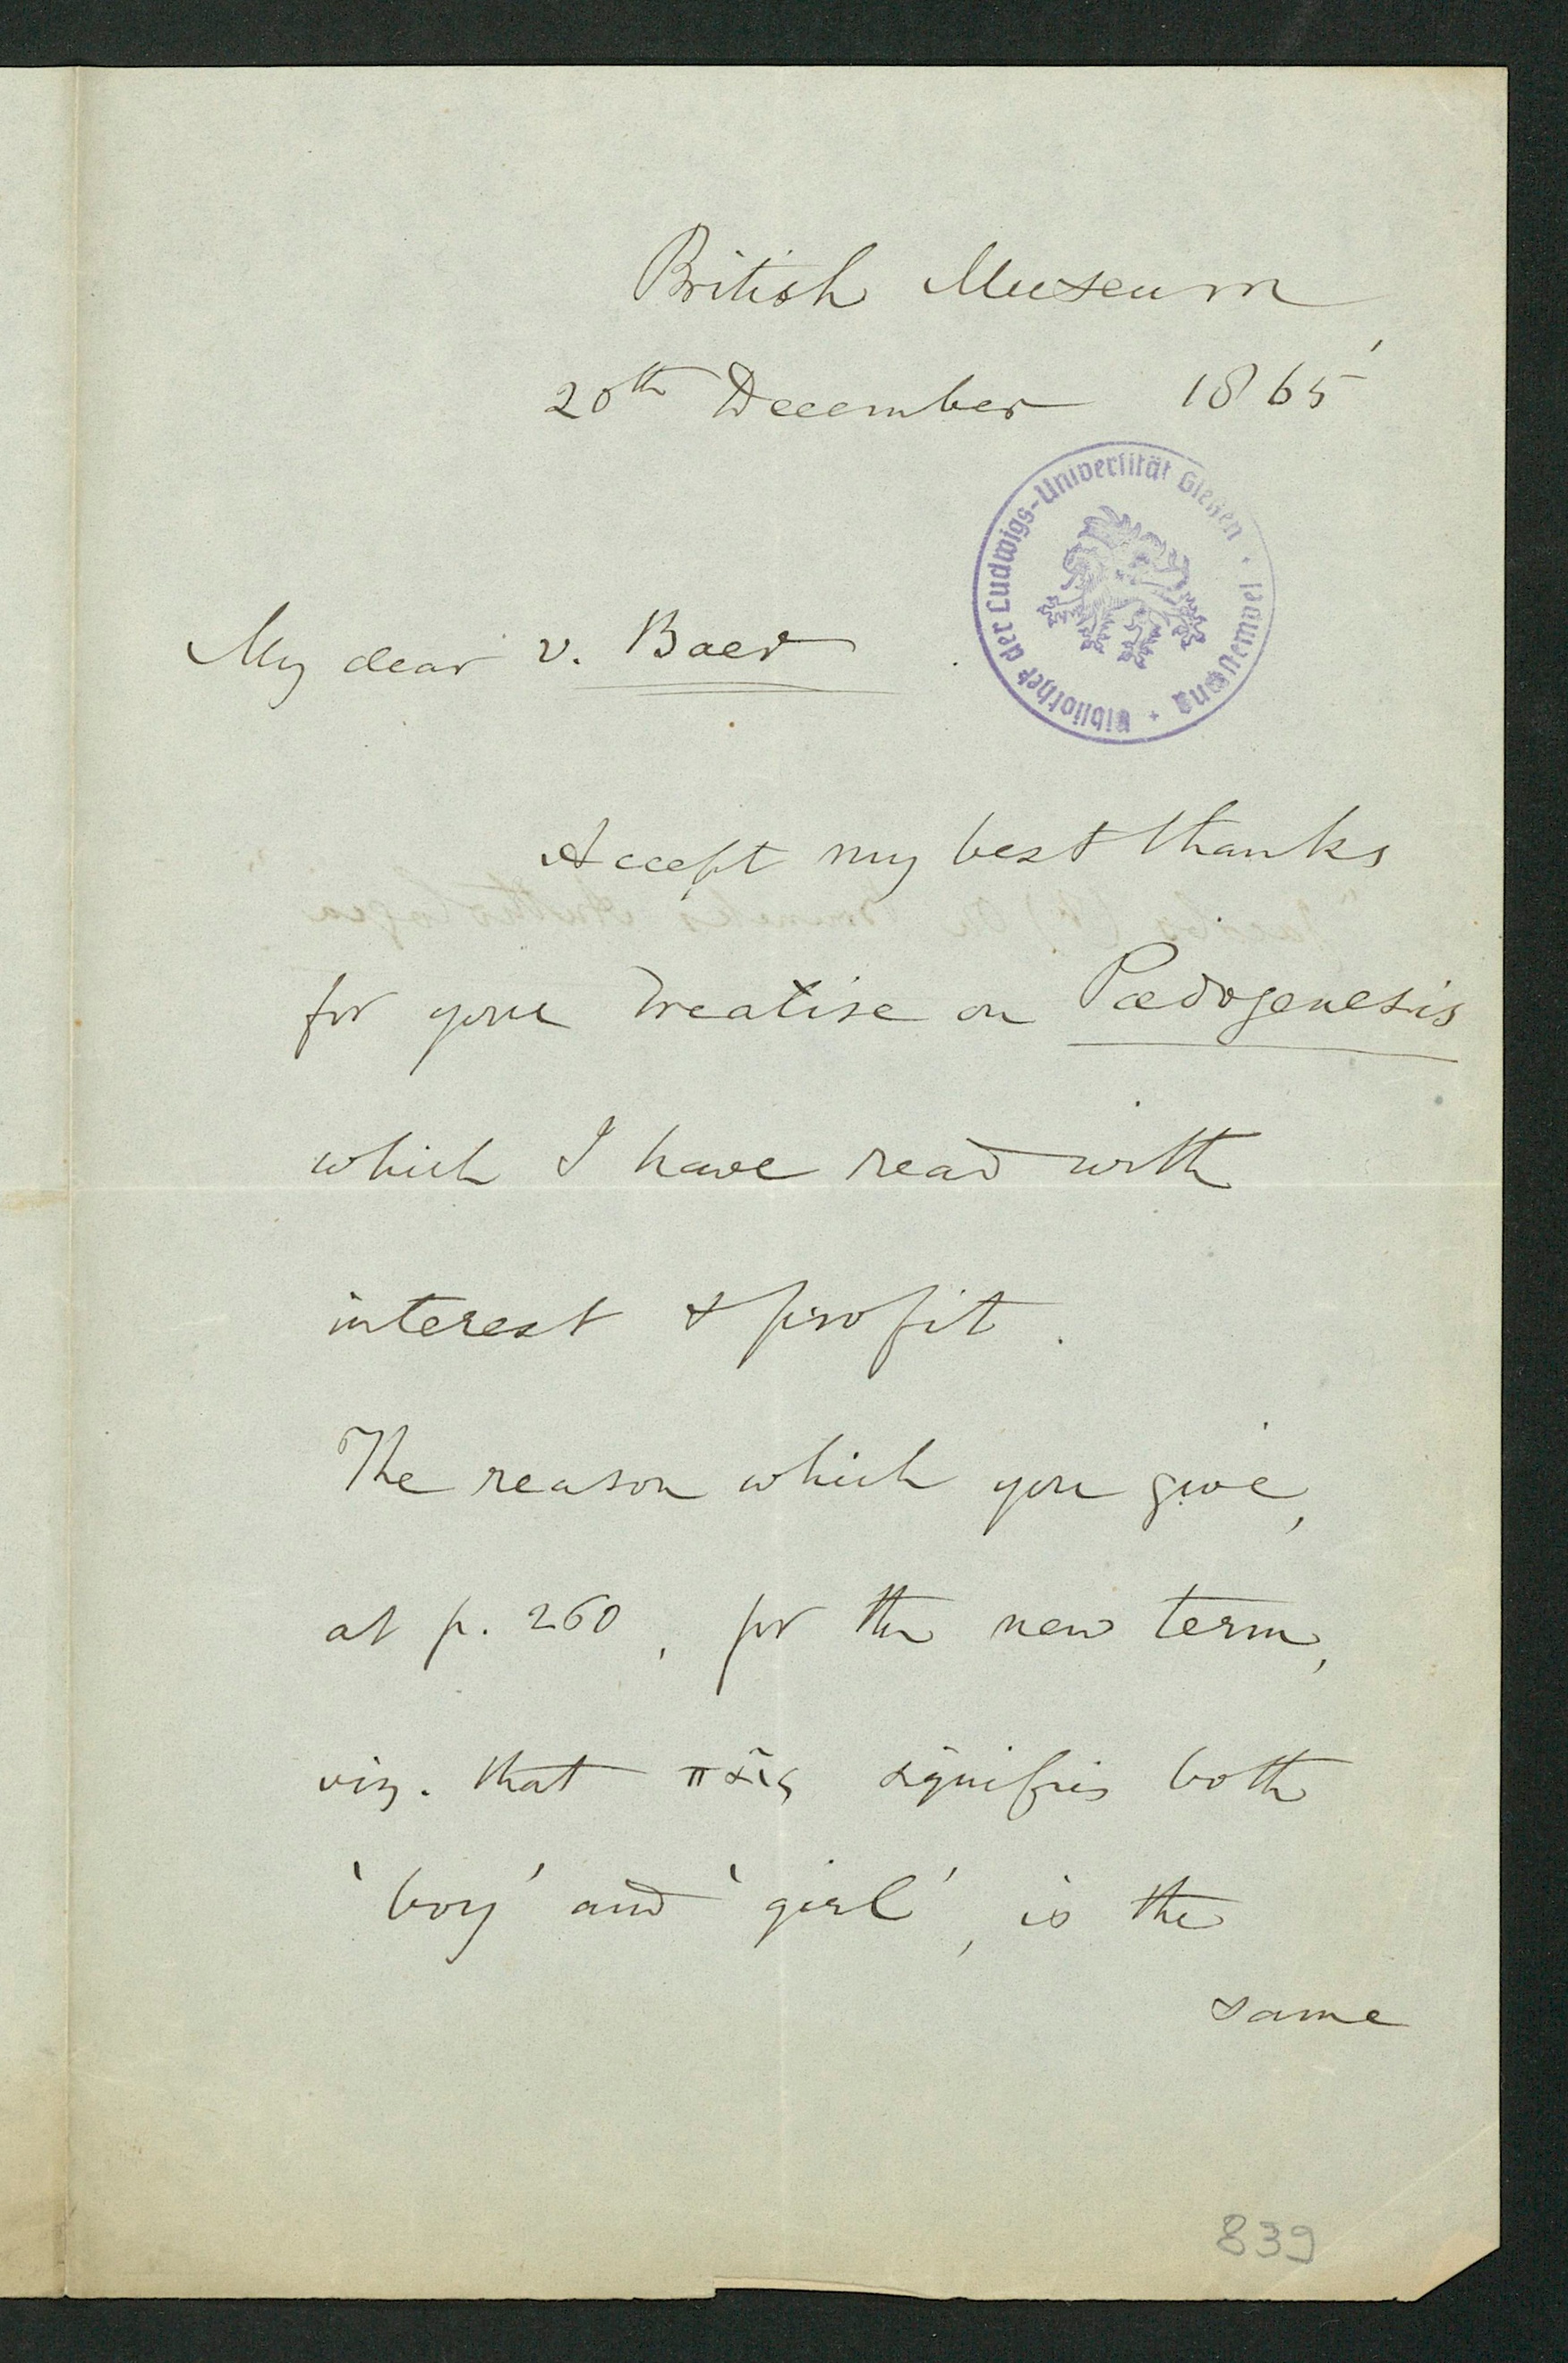 British Museum,
20th December 1865
Bibliothek der Ludwigs-Universität Gießen
My dear v. Baer
Accept my best thanks
for your treatise on Pædogenesis
which I have read with
interest & profit.
The reason which you give,
at p. 260, for the new term,
viz. that παῖς signifies both
'boy' and 'girl', is the
same
839